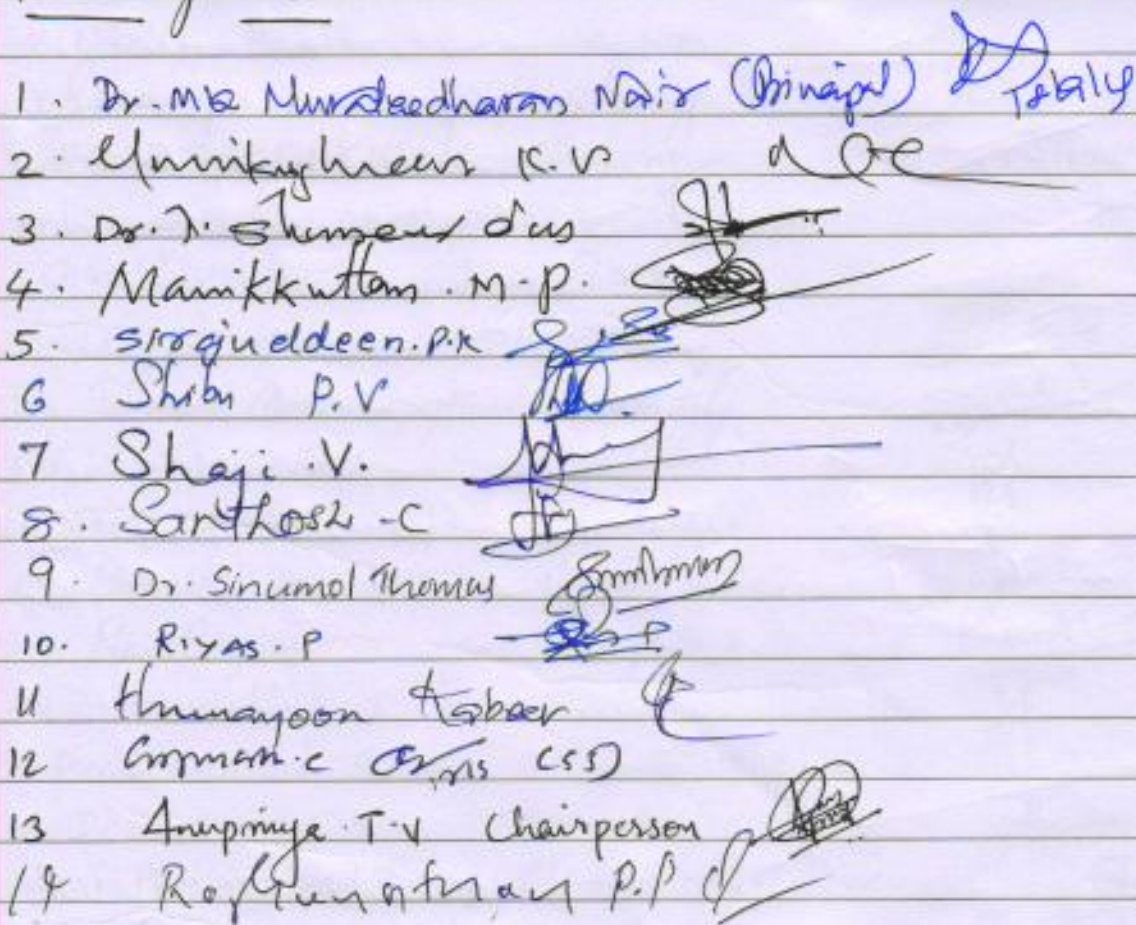 1. Dr. MK Muraleedharan Nair (Principal)
2. Unnikrishnan K.V
3. Dr. das
4. Manikkuttan. M-P.
5. Sirrajueddeen. P.K
6 Shibu P.V
7 Shaji. V.
8. Santhosh - C
9. Dr. Sinumol Thomas
10. RIYAS. P
11 Humayoon Kabeer
12 C
13 Anupriya. T-V Chairperson
14 Raghunathan P.P